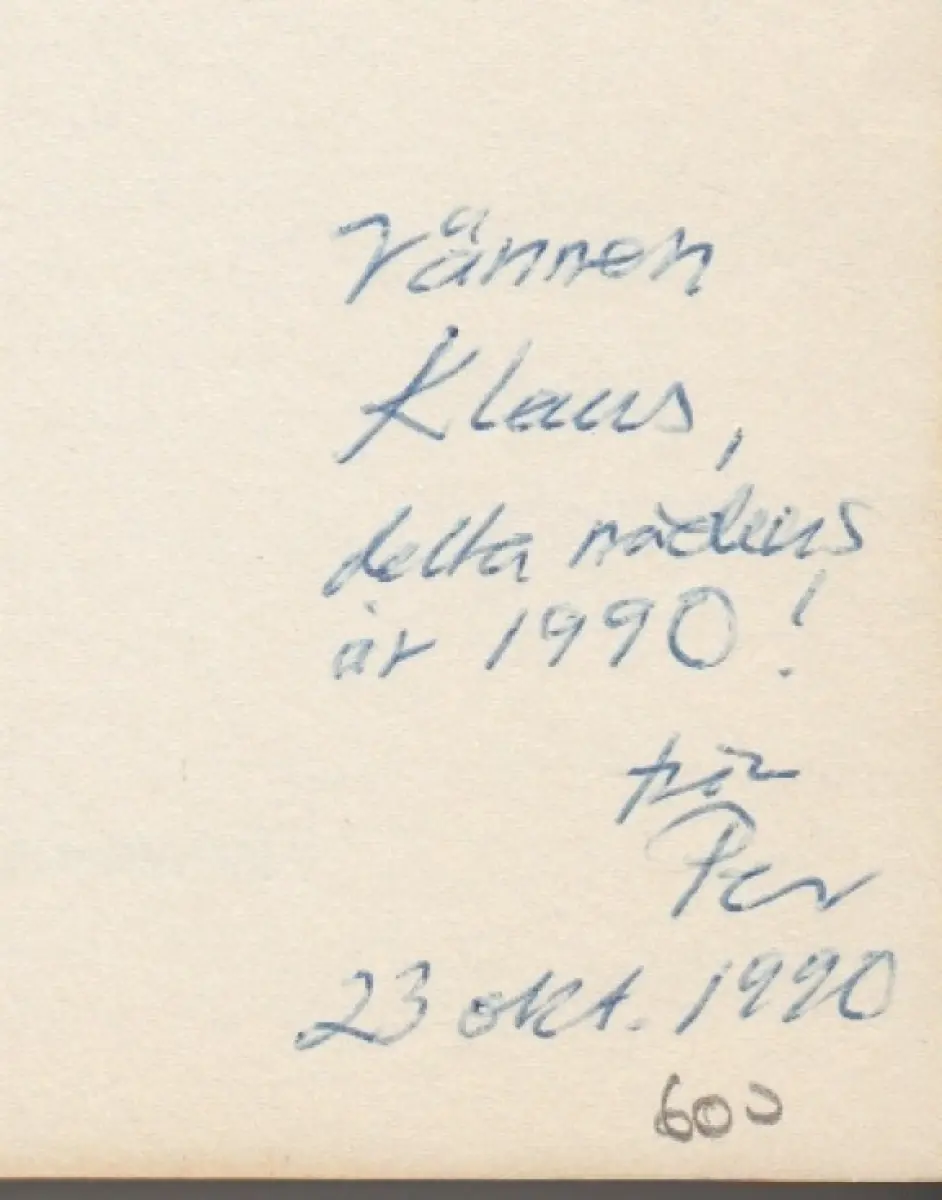 Vännen
Klaus,
detta nådens
år 1990!
från
Per
23 okt. 1990
600